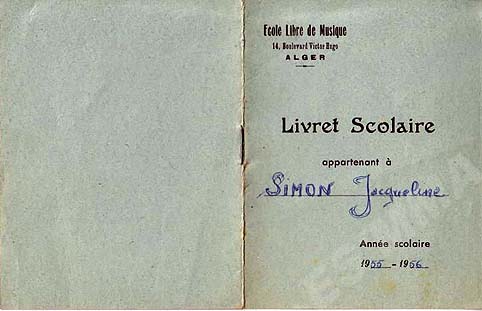 Ecole Libre de Musique
14, Boulevard Victor Hugo
ALGER
Livret Scolaire
appartenant à
SIMON Jacqueline
Année scolaire
1955-1956